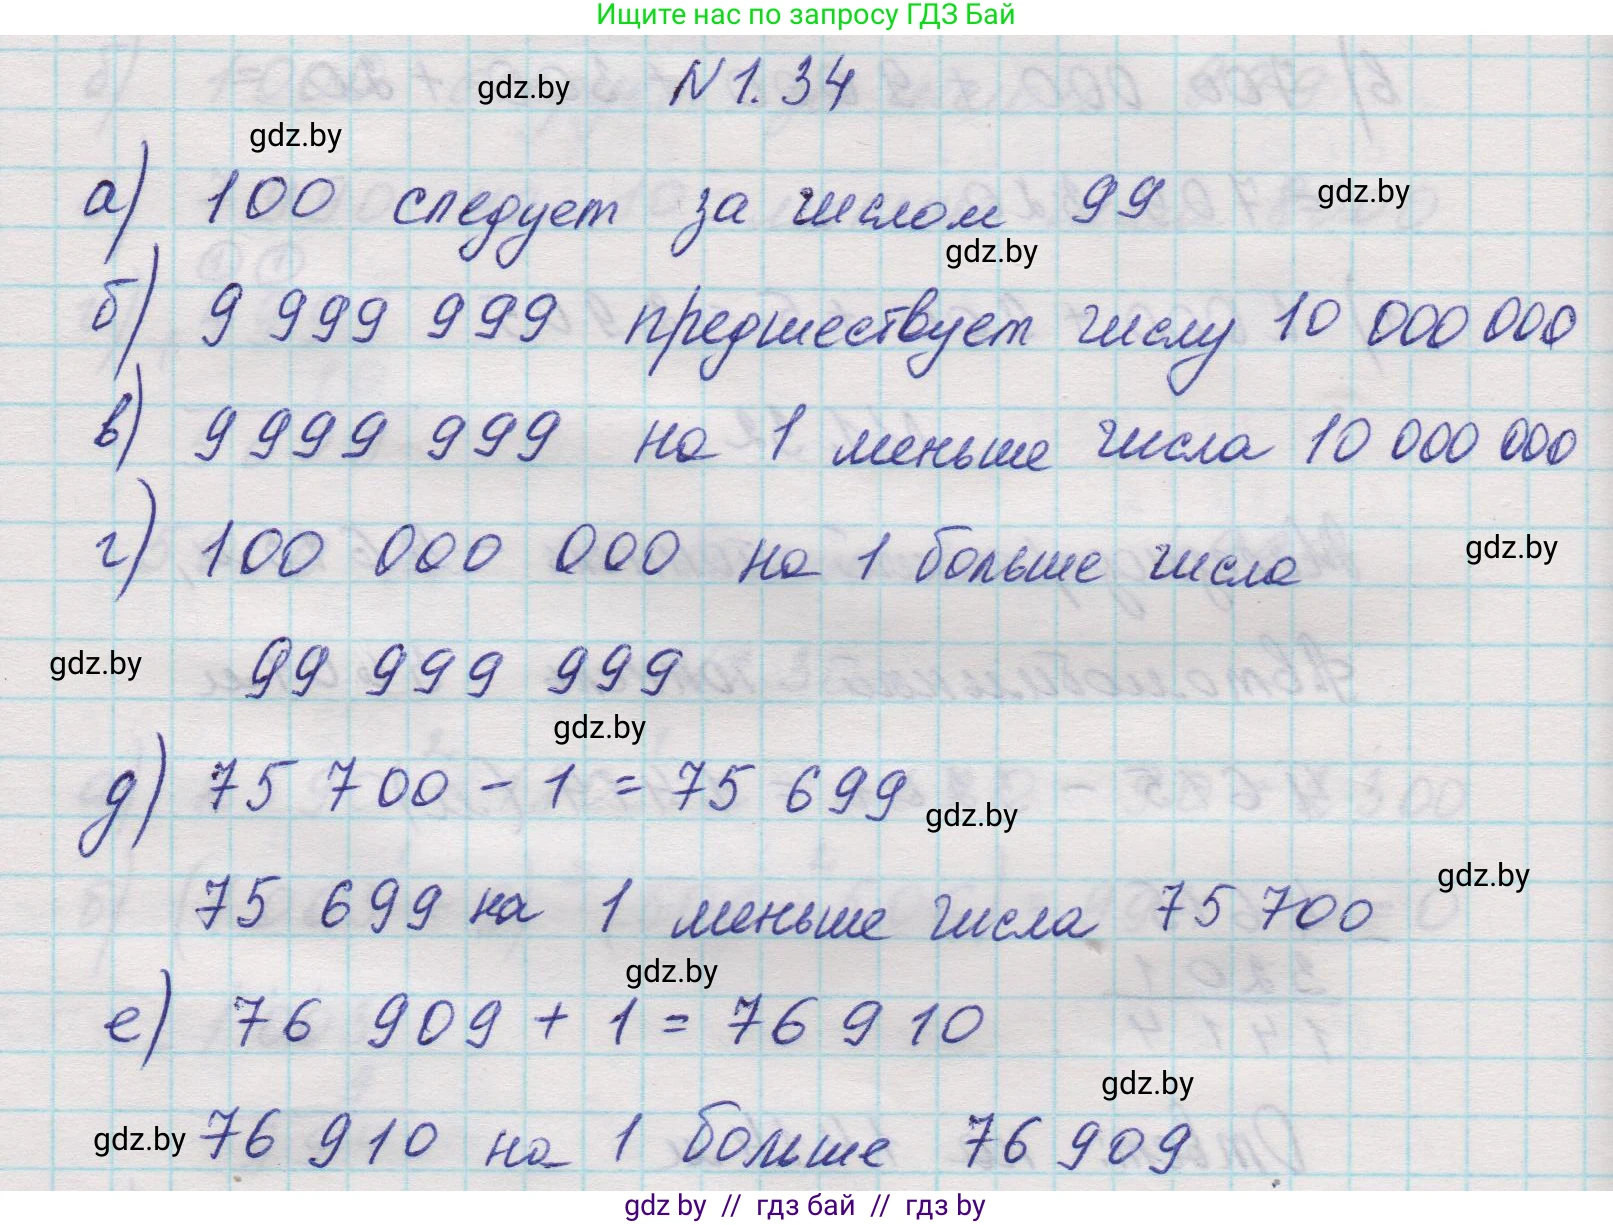 Ищите нас по запросу ГДЗ Бай
gdz.by N 1.34
gdz.by
а) 100 следует за числом 99 gdz.by
gdz.by
б) 9 999 999 предшествует числу 10 000 000
в) 9 999 999 на 1 меньше числа 10 000 000
г) 100 000 000 на 1 больше числа gdz.by
gdz.by 99 999 999
gdz.by
д) 75 700 - 1 = 75 699 gdz.by
gdz.by
75 699 на 1 меньше числа 75 700
gdz.by
е) 76 909 + 1 = 76 910
gdz.by
gdz.by 76 910 на 1 больше 76 909
gdz.by // гдз бай // гдз by